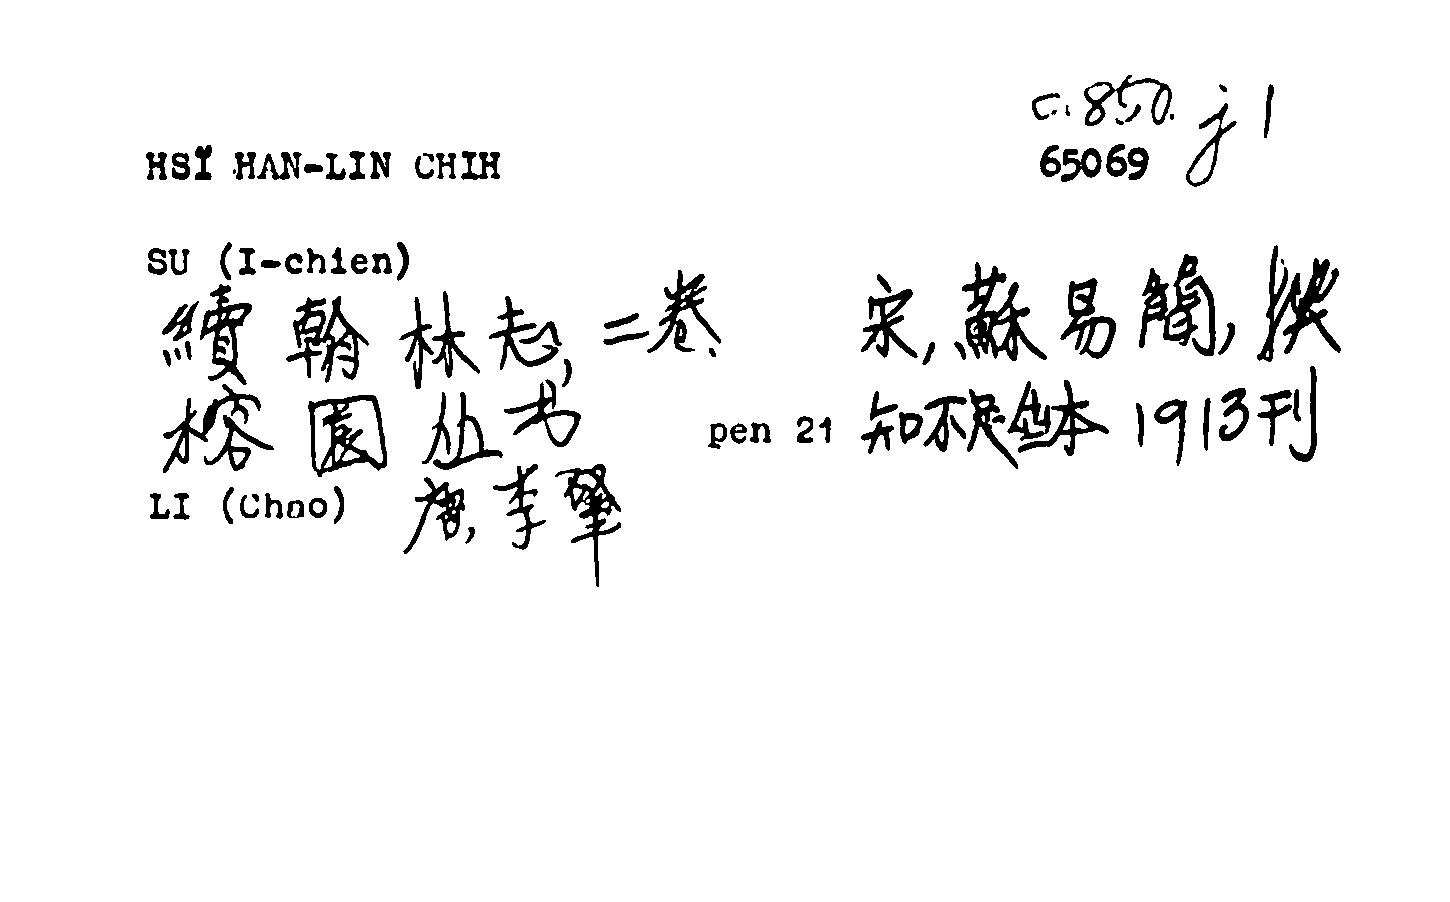 c. 850. j 1
HSÏ HAN-LIN CHIH 65069
SU (I-chien)
續翰林志, 二卷. 宋, 蘇易簡, 撰
榕園丛书 pen 21 知不足齋本 1913刊
LI (Chao) 唐, 李肇